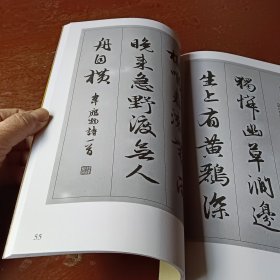 獨憐幽草澗邊
生上有黄鸝深
晚来急野渡無人
舟自横
韋應物詩一首
55